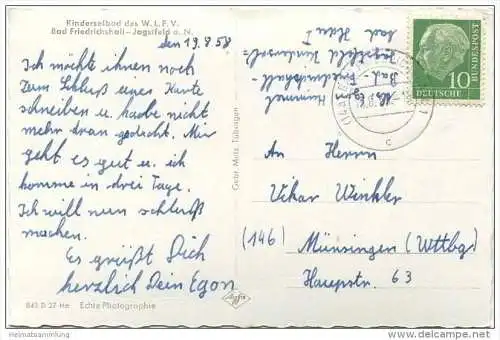 Kinderselbad des W. L. F. V.
Bad Friedrichshall - Jagstfeld a. N.
den 19.8.58
Ich möchte ihnen noch
zum Schluß eines Karte
schreiben u. haabe nicht
mehr dran gedacht. Mir
geht es gut u. ich
komme in drei Tage.
Ich will nun schluß
machen.
Es grüßt Dich
herzlich Dein Egon
843 D 27 He Echte Photographie
Gebr. Metz, Tübingen
Agfa
Bad
Friedrichshall-
Jagstfeld Kindersol-
bad
10
DEUTSCHE
BUNDESPOST
c
An Herrn
Vikar Winkler
(14b) Münsingen (Wttbg)
Hauptstr. 63
Heimatsammlung